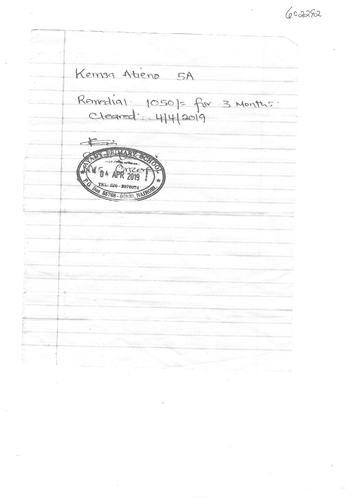 602282
Kemsa Atieno 5A
Remedial 1050/= for 3 Months.
Cleared: 4/4/2019
PRIMARY SCHOOL
04 APR 2019
TEL: 020-
P.O. Box NAIROBI